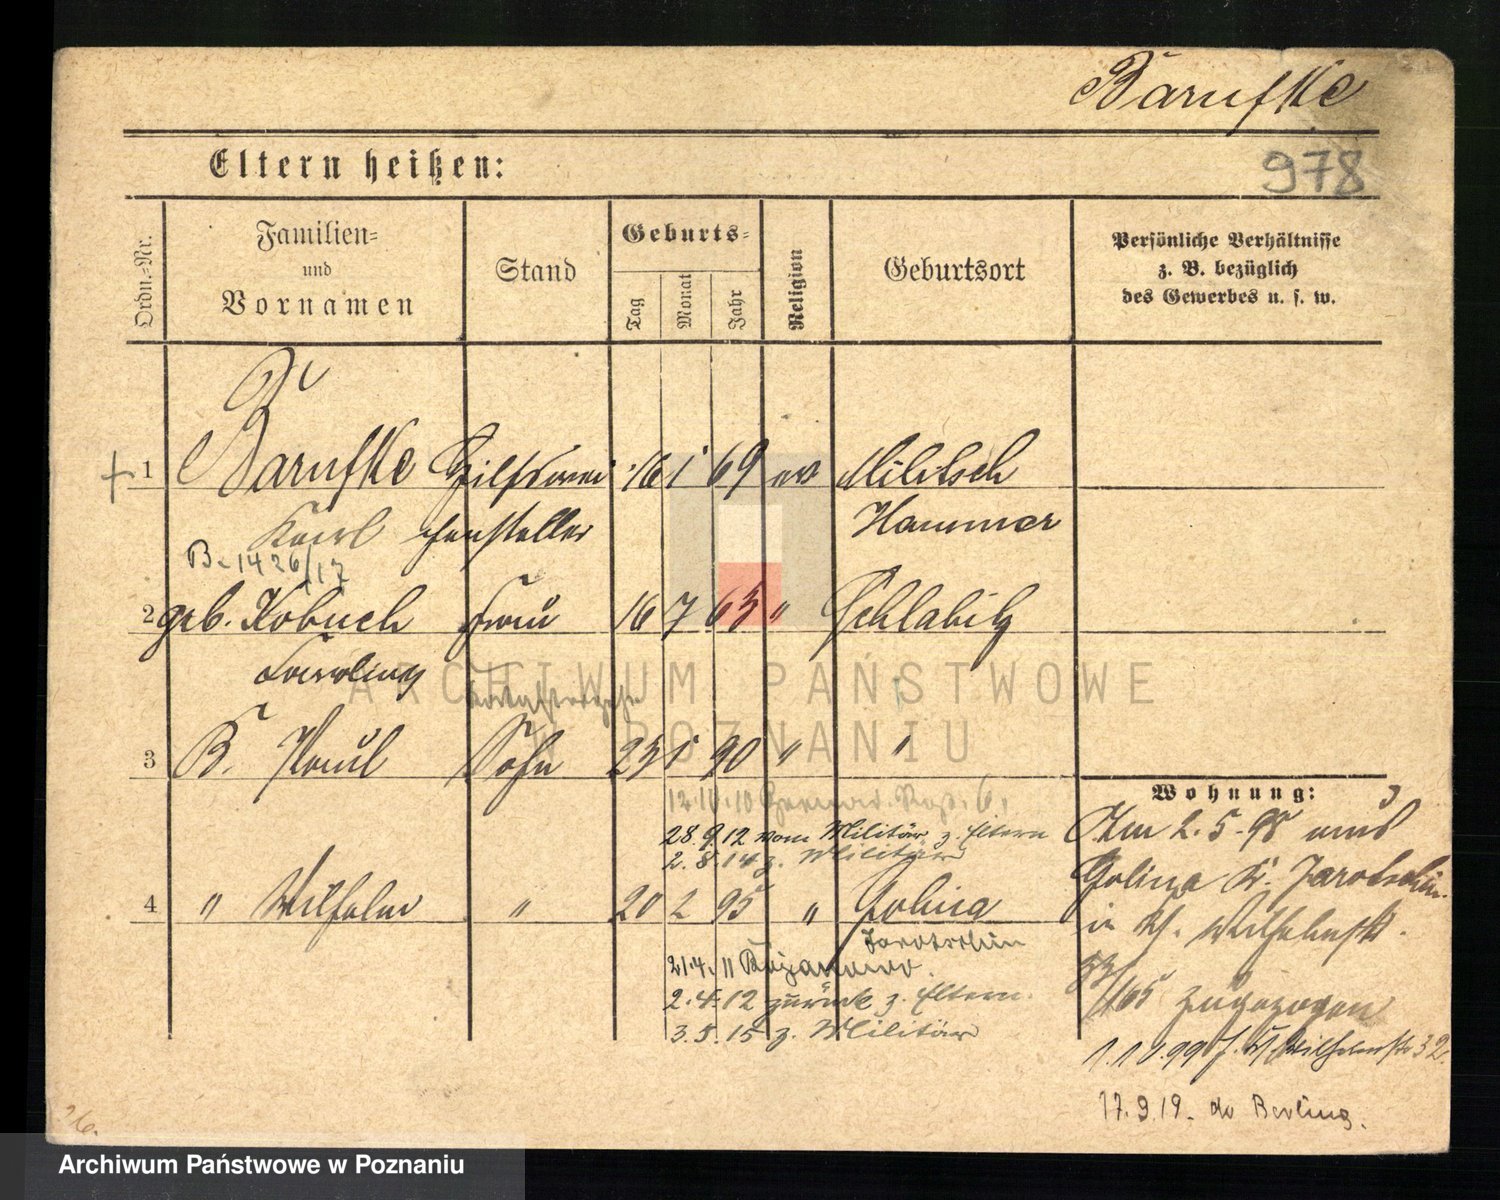 Barufke
Eltern heißen:
978
Ordn.-Nr.
Familien-
und
Vornamen
Stand
Geburts-
Tag
Monat
Jahr
Religion
Geburtsort
Persönliche Verhältnisse
z. B. bezüglich
des Gewerbes u. s. w.
+ 1 Barufke Hilfswei 16 1 69 ev Militsch
Karl chensteller Hammer
B. 1426/17
2 geb. Kobuch Frau 16 7 65 " Schlabitz
3 B. Paul Sohn 23 1 90 " "
Wohnung:
12.10.10
28.9.12 vom Militär z. Eltern
2.8.14 z. Militär
Am 2.5.98 aus
Golina Kr. Jarotschin
4 " Wilhelm " 20 2 95 " Golina
in Wilhelmstr.
Jarotschin
21.4.11 Bojanowo.
53/165 zugezogen
2.4.12 zurück z. Eltern.
3.5.15 z. Militär
1.10.99 Wilhelmstr 32.
17.9.19
ARCHIWUM PAŃSTWOWE
W POZNANIU
Archiwum Państwowe w Poznaniu